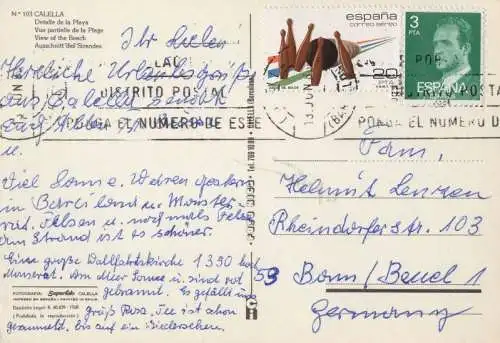 N.º 103 CALELLA
Detalle de la Playa
Vue partielle de la Plage
View of the Beach
Ausschnitt des Strandes
Ihr Lieben
Herzliche Urlaubsgrüße
aus Calella sendet
u.
Viel Sonne. Waren gestern
in Barcelona und Monser-
rat. Felsen u. nochmals Felsen
am Strand ist es schöner.
Eine große Wallfahrtskirche 1390
Monserat. Am Meer Sonne u. sind rot
gebrannt. Es gefällt
gruß Rosa. Ilse ist schon
gesammelt. bis auf ein Wiedersehen.
FOTOGRAFIA: CALELLA
Depósito Legal B.
(Prohibida la reproducción)
españa
correo aéreo
20
3
PTA
ESPAÑA
DISTRITO POSTAL
PONGA EL NUMERO DE ESTE
PONGA EL NUMERO D
13 JUN
Fam.
Helmut Lenzen
Rheindorferstr. 103
53 Bonn/Beuel 1
Germany